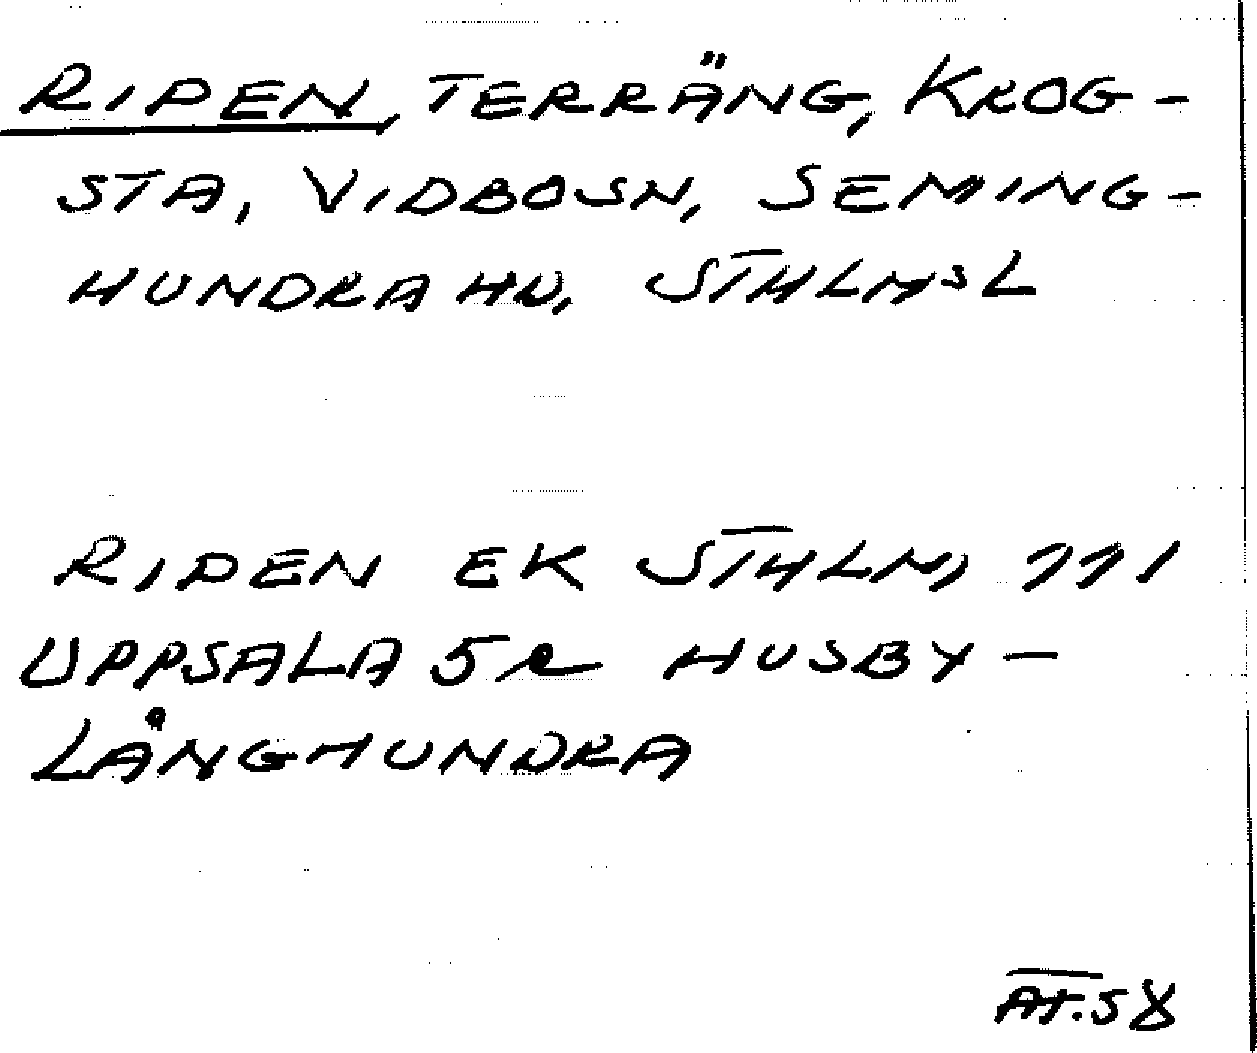 RIDEN, TERRÄNG, KROG-
STA, VIDBOSN, SEMING-
HUNDRA HD, STHLMSL
RIDEN EK STHLM, 11I
UPPSALA 5e HUSBY-
LÅNGHUNDRA
AT.58